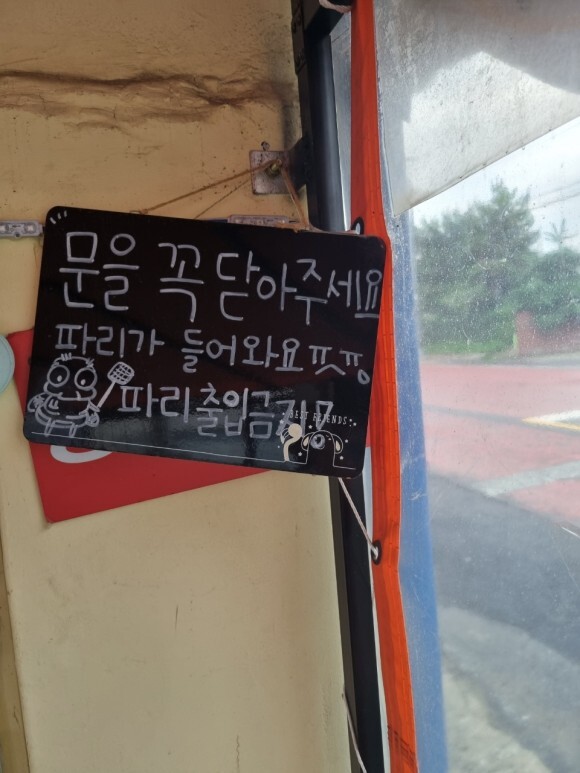 문을 꼭 닫아주세요
파리가 들어와요 ㅠㅅㅠ
파리출입금지
BEST FRIENDS